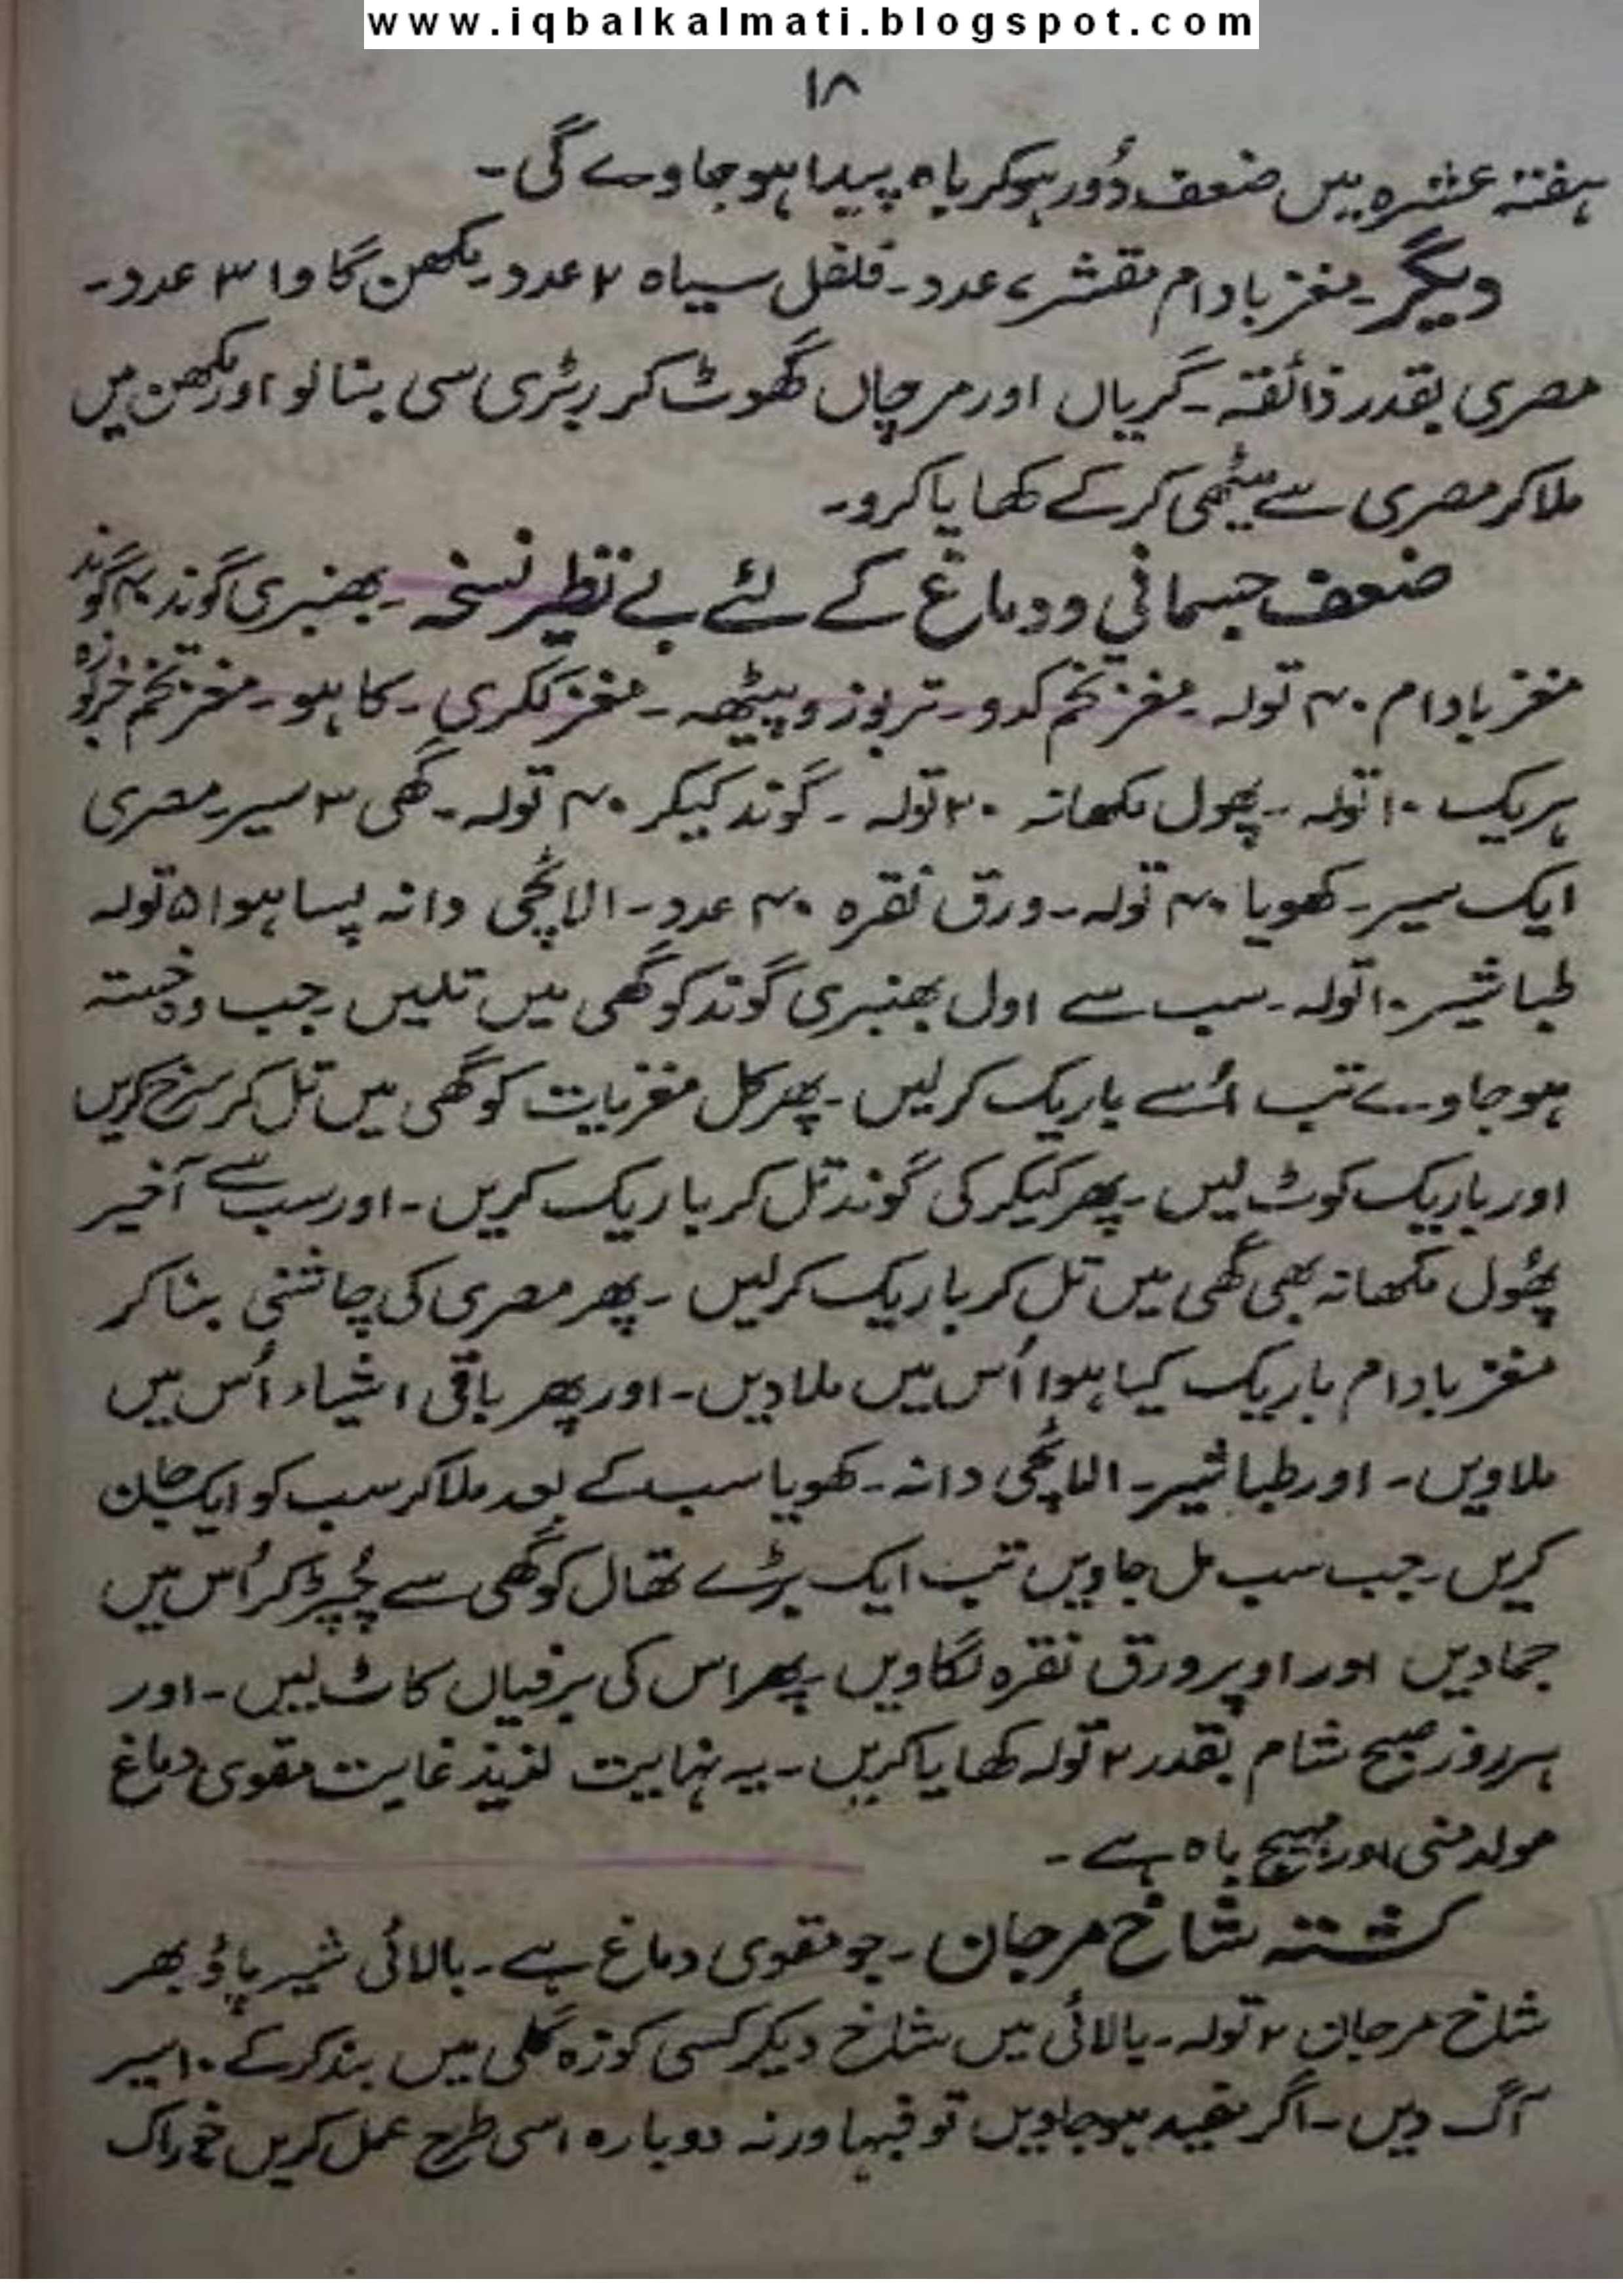 www.iqbalkalmati.blogspot.com
۱۸
ہفتہ عشرہ میں ضعف دُور ہوکر باہ پیدا ہو جاوے گی۔
دیگر۔ مغز بادام مقشر ۷ عدد۔ فلفل سیاہ ۲ عدد۔ مکھن گاوا ۳ عدد۔
مصری بقدر ذائقہ۔ گریاں اور مرچاں گھوٹ کر ربڑی سی بنا لو اور مکھن میں
ملا کر مصری سے میٹھی کر کے کھایا کرو۔
ضعف جسمانی و دماغ کے لئے بے نظیر نسخہ۔ بھنبری گوند ۴۰ گوند
مغز بادام ۴۰ تولہ۔ مغز تخم کدو۔ تربوز و پیٹھہ۔ مغز ککڑی۔ کاہو۔ مغز تخم خربوزہ
ہریک ۱۰ تولہ۔ پھول مکھانہ ۲۰ تولہ۔ گوند کیکر ۴۰ تولہ۔ گھی ۳ سیر۔ مصری
ایک سیر۔ کھویا ۴۰ تولہ۔ ورق نقرہ ۴۰ عدد۔ الائچی دانہ پسا ہوا ۵ تولہ
طباشیر ۱۰ تولہ۔ سب سے اول بھنبری گوند کو گھی میں تلیں۔ جب وہ خستہ
ہو جاوے تب اُسے باریک کر لیں۔ پھر کل مغزیات کو گھی میں تل کر سرخ کریں
اور باریک کوٹ لیں۔ پھر کیکر کی گوند تل کر باریک کریں۔ اور سب سے آخیر
پھُول مکھانہ بھی گھی میں تل کر باریک کر لیں۔ پھر مصری کی چاشنی بنا کر
مغز بادام باریک کیا ہوا اُس میں ملا دیں۔ اور پھر باقی اشیاء اُس میں
ملاویں۔ اور طباشیر۔ الائچی دانہ۔ کھویا سب کے بعد ملا کر سب کو ایک جان
کریں۔ جب سب مل جاویں تب ایک بڑے تھال کو گھی سے چُپڑ کر اُس میں
جمادیں اور اوپر ورق نقرہ لگاویں پھر اس کی برفیاں کاٹ لیں۔ اور
ہر روز صبح شام بقدر ۲ تولہ کھایا کریں۔ یہ نہایت لذیذ غایت مقوی دماغ
مولد منی اور مہیج باہ ہے۔
کشتہ شاخ مرجان۔ جو مقوی دماغ ہے۔ بالائی شیر پاؤ بھر
شاخ مرجان ۲ تولہ۔ بالائی میں شاخ دیکر کسی کوزہ گلی میں بند کر کے ۱۰ سیر
آگ دیں۔ اگر سفید ہو جاویں تو فبہا ورنہ دوبارہ اسی طرح عمل کریں خوراک